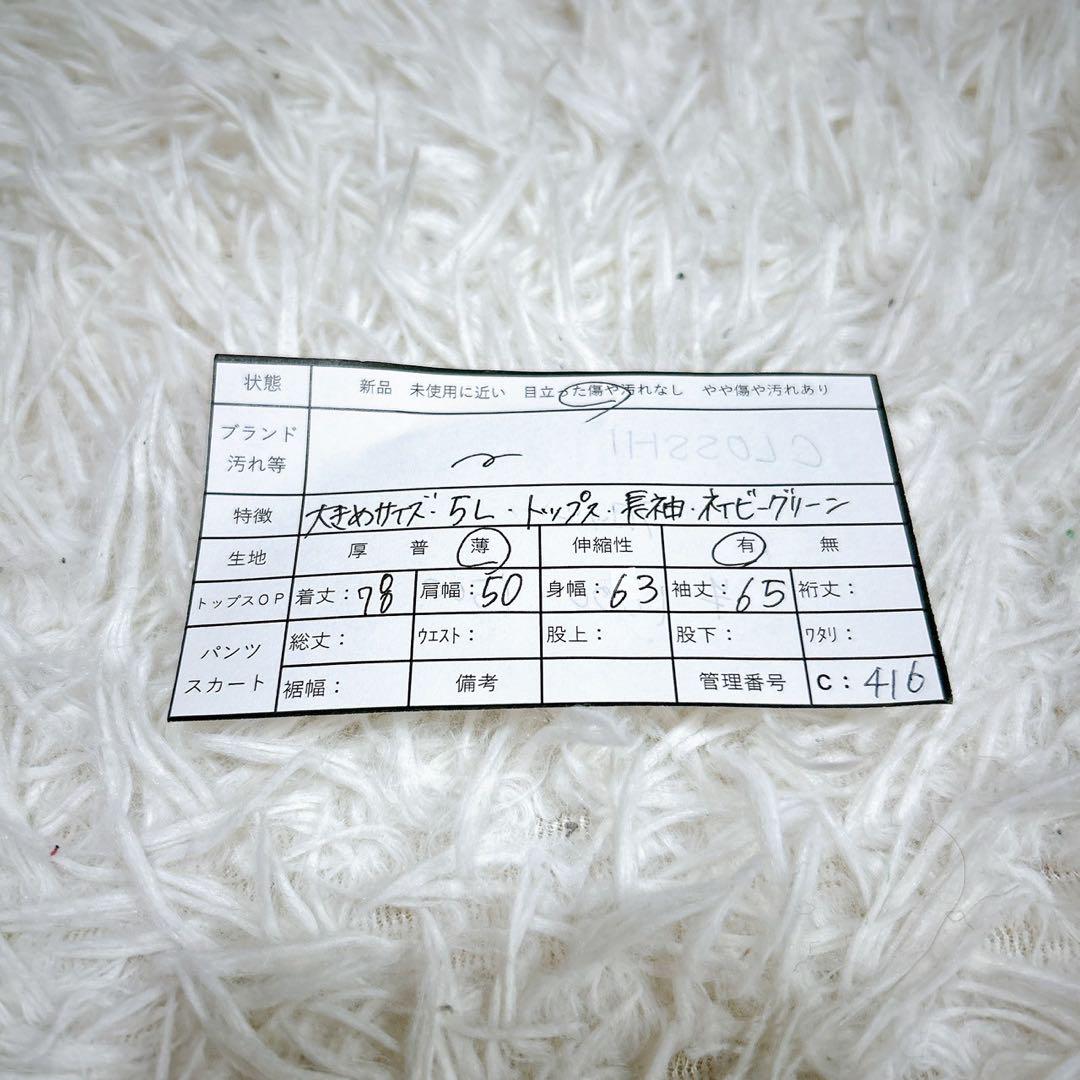 状態 新品 未使用に近い 目立った傷や汚れなし やや傷や汚れあり
ブランド
汚れ等
特徴 大きめサイズ・5L・トップス・長袖・ネイビーグリーン
生地 厚 普 薄 伸縮性 有 無
トップスOP 着丈:78 肩幅:50 身幅:63 袖丈:65 裄丈:
パンツ 総丈: ウエスト: 股上: 股下: ワタリ:
スカート 裾幅: 備考 管理番号 C:416